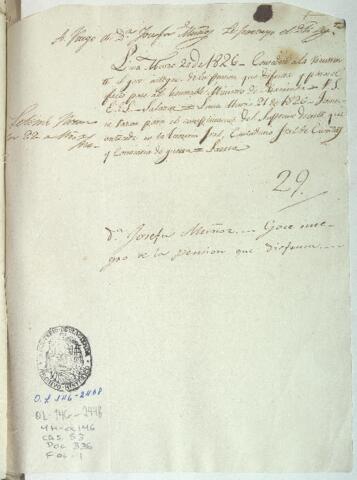 A Fuego de Dª Josefa Muñoz
Lima Marzo 21 de 1826 = Concedese a la recurren
te el goce integro de la pension que disfruta y pase al
efecto por el honorable Ministro de Hacienda = P. S.
E. = Salazar = Lima Marzo 21 de 1826 = Tome
se razon para el cumplimiento del Supremo decreto que
antecede en la Tesoreria Jral, Contaduria Jral de Cuentas
y Comisaria de guerra = Larrea
29.
Dª Josefa Muñoz ... Goce inte-
gro de la pension que disfruta ...
O.L. 146-2448
OL-146-2448
MH-OL 146
Cas. 53
Doc 336
Fol-1